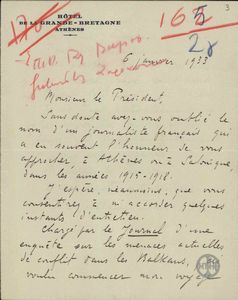 3
HÔTEL
DE LA GRANDE-BRETAGNE
ATHÈNES
165
28
6 janvier 1933
Monsieur le Président,
Sans doute avez-vous oublié le
nom d'un journaliste français qui
a eu souvent l'honneur de vous
approcher, à Athènes ou à Salonique,
dans les années 1915-1918.
J'espère, néanmoins, que vous
consentirez à m'accorder quelques
instants d'entretien.
Chargé par le Journal d'une
enquête sur les menaces actuelles
de conflit dans les Balkans,
voulu commencer mon voyage